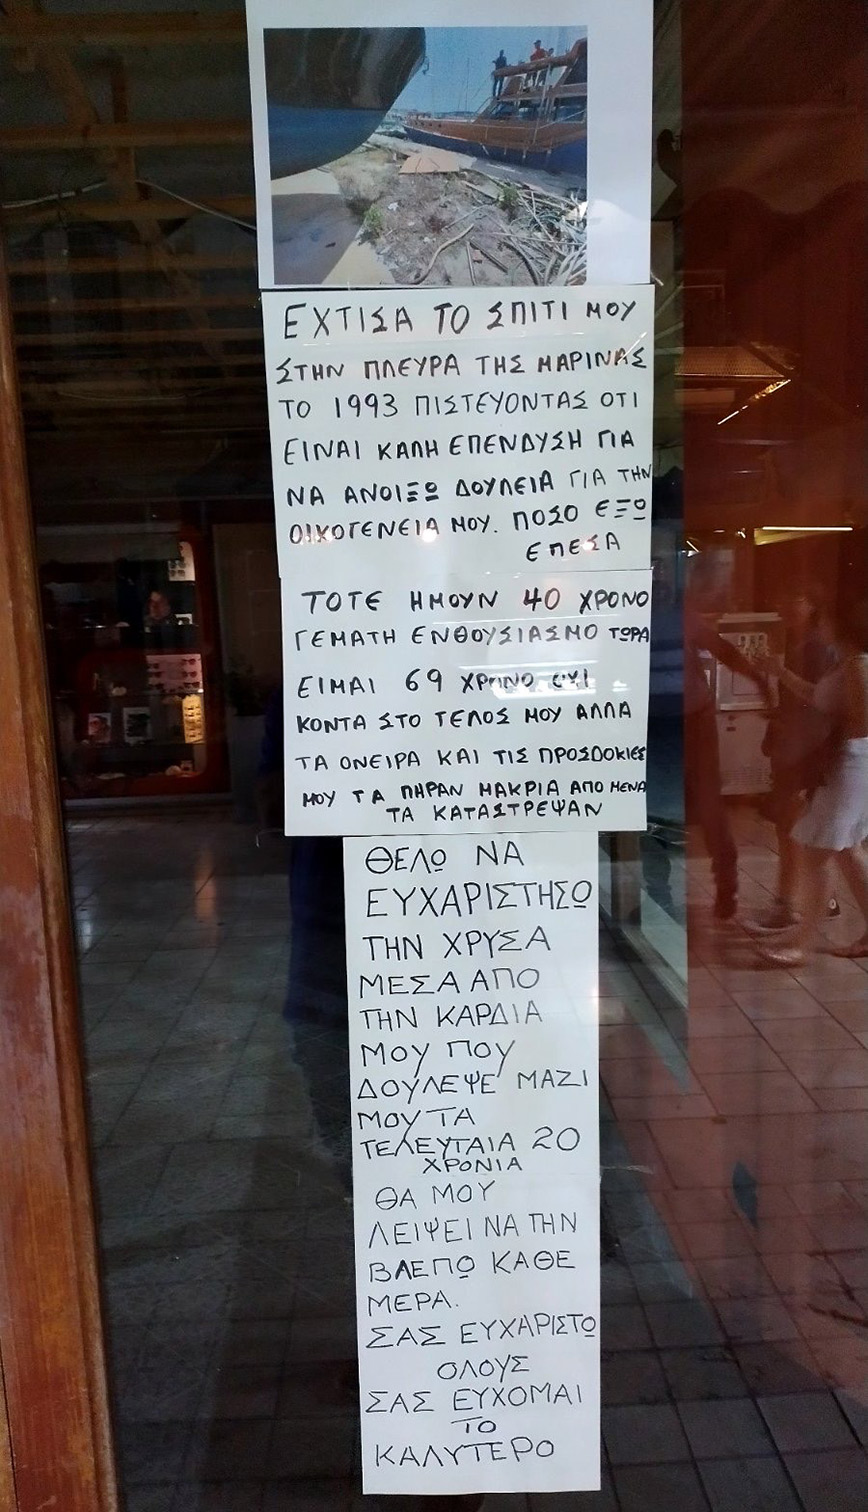 ΕΧΤΙΣΑ ΤΟ ΣΠΙΤΙ ΜΟΥ
ΣΤΗΝ ΠΛΕΥΡΑ ΤΗΣ ΜΑΡΙΝΑΣ
ΤΟ 1993 ΠΙΣΤΕΥΟΝΤΑΣ ΟΤΙ
ΕΙΝΑΙ ΚΑΛΗ ΕΠΕΝΔΥΣΗ ΓΙΑ
ΝΑ ΑΝΟΙΞΩ ΔΟΥΛΕΙΑ ΓΙΑ ΤΗΝ
ΟΙΚΟΓΕΝΕΙΑ ΜΟΥ. ΠΟΣΟ ΕΞΩ
ΕΠΕΣΑ
ΤΟΤΕ ΗΜΟΥΝ 40 ΧΡΟΝΟ
ΓΕΜΑΤΗ ΕΝΘΟΥΣΙΑΣΜΟ ΤΩΡΑ
ΕΙΜΑΙ 69 ΧΡΟΝΟ
ΚΟΝΤΑ ΣΤΟ ΤΕΛΟΣ ΜΟΥ ΑΛΛΑ
ΤΑ ΟΝΕΙΡΑ ΚΑΙ ΤΙΣ ΠΡΟΣΔΟΚΙΕΣ
ΜΟΥ ΤΑ ΠΗΡΑΝ ΜΑΚΡΙΑ ΑΠΟ ΜΕΝΑ
ΤΑ ΚΑΤΑΣΤΡΕΨΑΝ
ΘΕΛΩ ΝΑ
ΕΥΧΑΡΙΣΤΗΣΩ
ΤΗΝ ΧΡΥΣΑ
ΜΕΣΑ ΑΠΟ
ΤΗΝ ΚΑΡΔΙΑ
ΜΟΥ ΠΟΥ
ΔΟΥΛΕΨΕ ΜΑΖΙ
ΜΟΥ ΤΑ
ΤΕΛΕΥΤΑΙΑ 20
ΧΡΟΝΙΑ
ΘΑ ΜΟΥ
ΛΕΙΨΕΙ ΝΑ ΤΗΝ
ΒΛΕΠΩ ΚΑΘΕ
ΜΕΡΑ.
ΣΑΣ ΕΥΧΑΡΙΣΤΩ
ΟΛΟΥΣ
ΣΑΣ ΕΥΧΟΜΑΙ
ΤΟ
ΚΑΛΥΤΕΡΟ